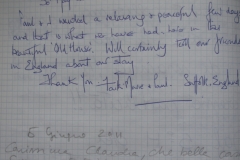 and I needed a relaxing & peaceful few days
and that is what we have had here in this
beautiful Old House. Will certainly tell our friends
in England about our stay
Thank You Suffolk. England
Giugno 2011
Carissima Claudia, che bella